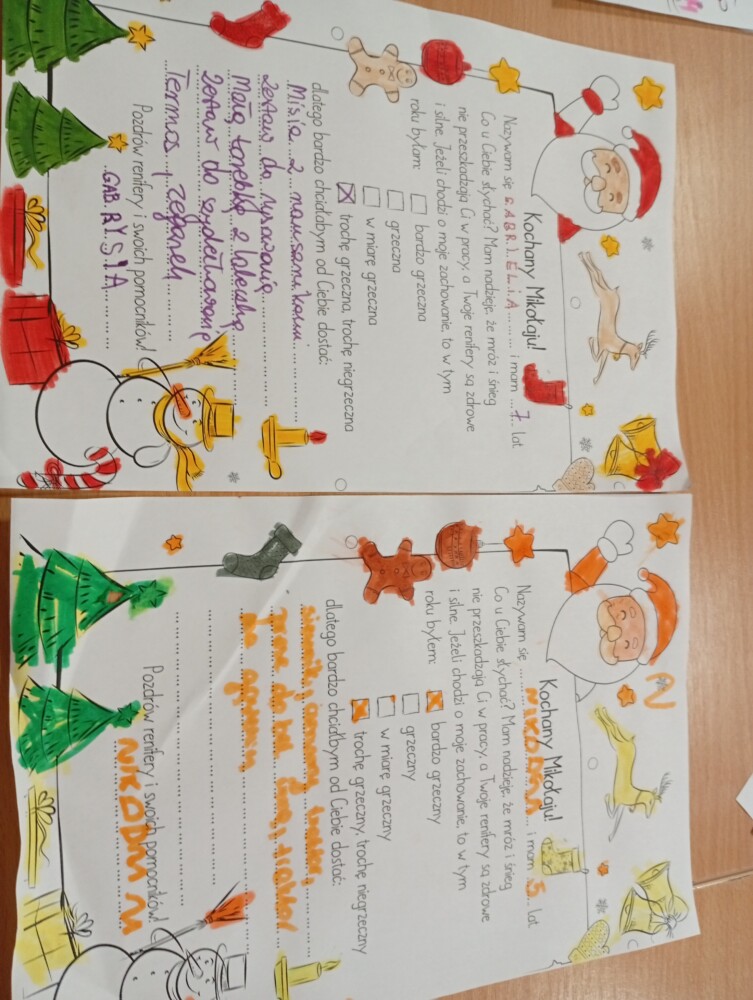 Kochany Mikołaju!
Nazywam się GABRIELIA i mam 7 lat
Co u Ciebie słychać? Mam nadzieję, że mróz i śnieg
nie przeszkadzają Ci w pracy, a Twoje renifery są zdrowe
i silne. Jeżeli chodzi o moje zachowanie, to w tym
roku byłam:
bardzo grzeczna
grzeczna
w miarę grzeczna
trochę grzeczna, trochę niegrzeczna
dlatego bardzo chciałabym od Ciebie dostać:
Misia z
zestaw do rysowania
Małą torebkę z
zestaw do
Termos, zegarek
Pozdrów renifery i swoich pomocników!
GABRYSIA
Kochany Mikołaju!
Nazywam się NIKODEM i mam 5 lat
Co u Ciebie słychać? Mam nadzieję, że mróz i śnieg
nie przeszkadzają Ci w pracy, a Twoje renifery są zdrowe
i silne. Jeżeli chodzi o moje zachowanie, to w tym
roku byłem:
bardzo grzeczny
grzeczny
w miarę grzeczny
trochę grzeczny, trochę niegrzeczny
dlatego bardzo chciałbym od Ciebie dostać:
silnik, czerwony traktor,
prasę do bel, traktor
na
Pozdrów renifery i swoich pomocników!
NIKODEM